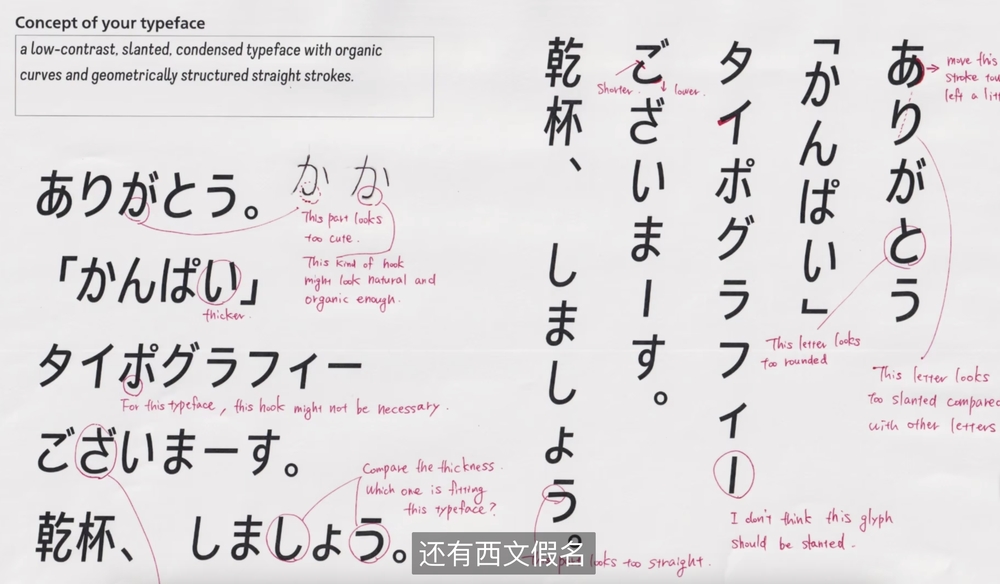 Concept of your typeface
a low-contrast, slanted, condensed typeface with organic
curves and geometrically structured straight strokes.
ありがとう。
か か
This part looks
too cute.
This kind of hook
might look natural and
organic enough.
「かんぱい」
thicker.
タイポグラフィー
For this typeface, this hook might not be necessary.
ございまーす。
Compare the thickness.
Which one is fitting
this typeface?
乾杯、 しましょう。
ありがとう
move this
stroke
left a
This letter looks
too slanted compared
with other letters
「かんぱい」
This letter looks
too rounded
タイポグラフィー
I don't think this glyph
should be slanted.
ございまーす。
Shorter.
lower.
乾杯、 しましょう。
looks too straight.
还有西文假名